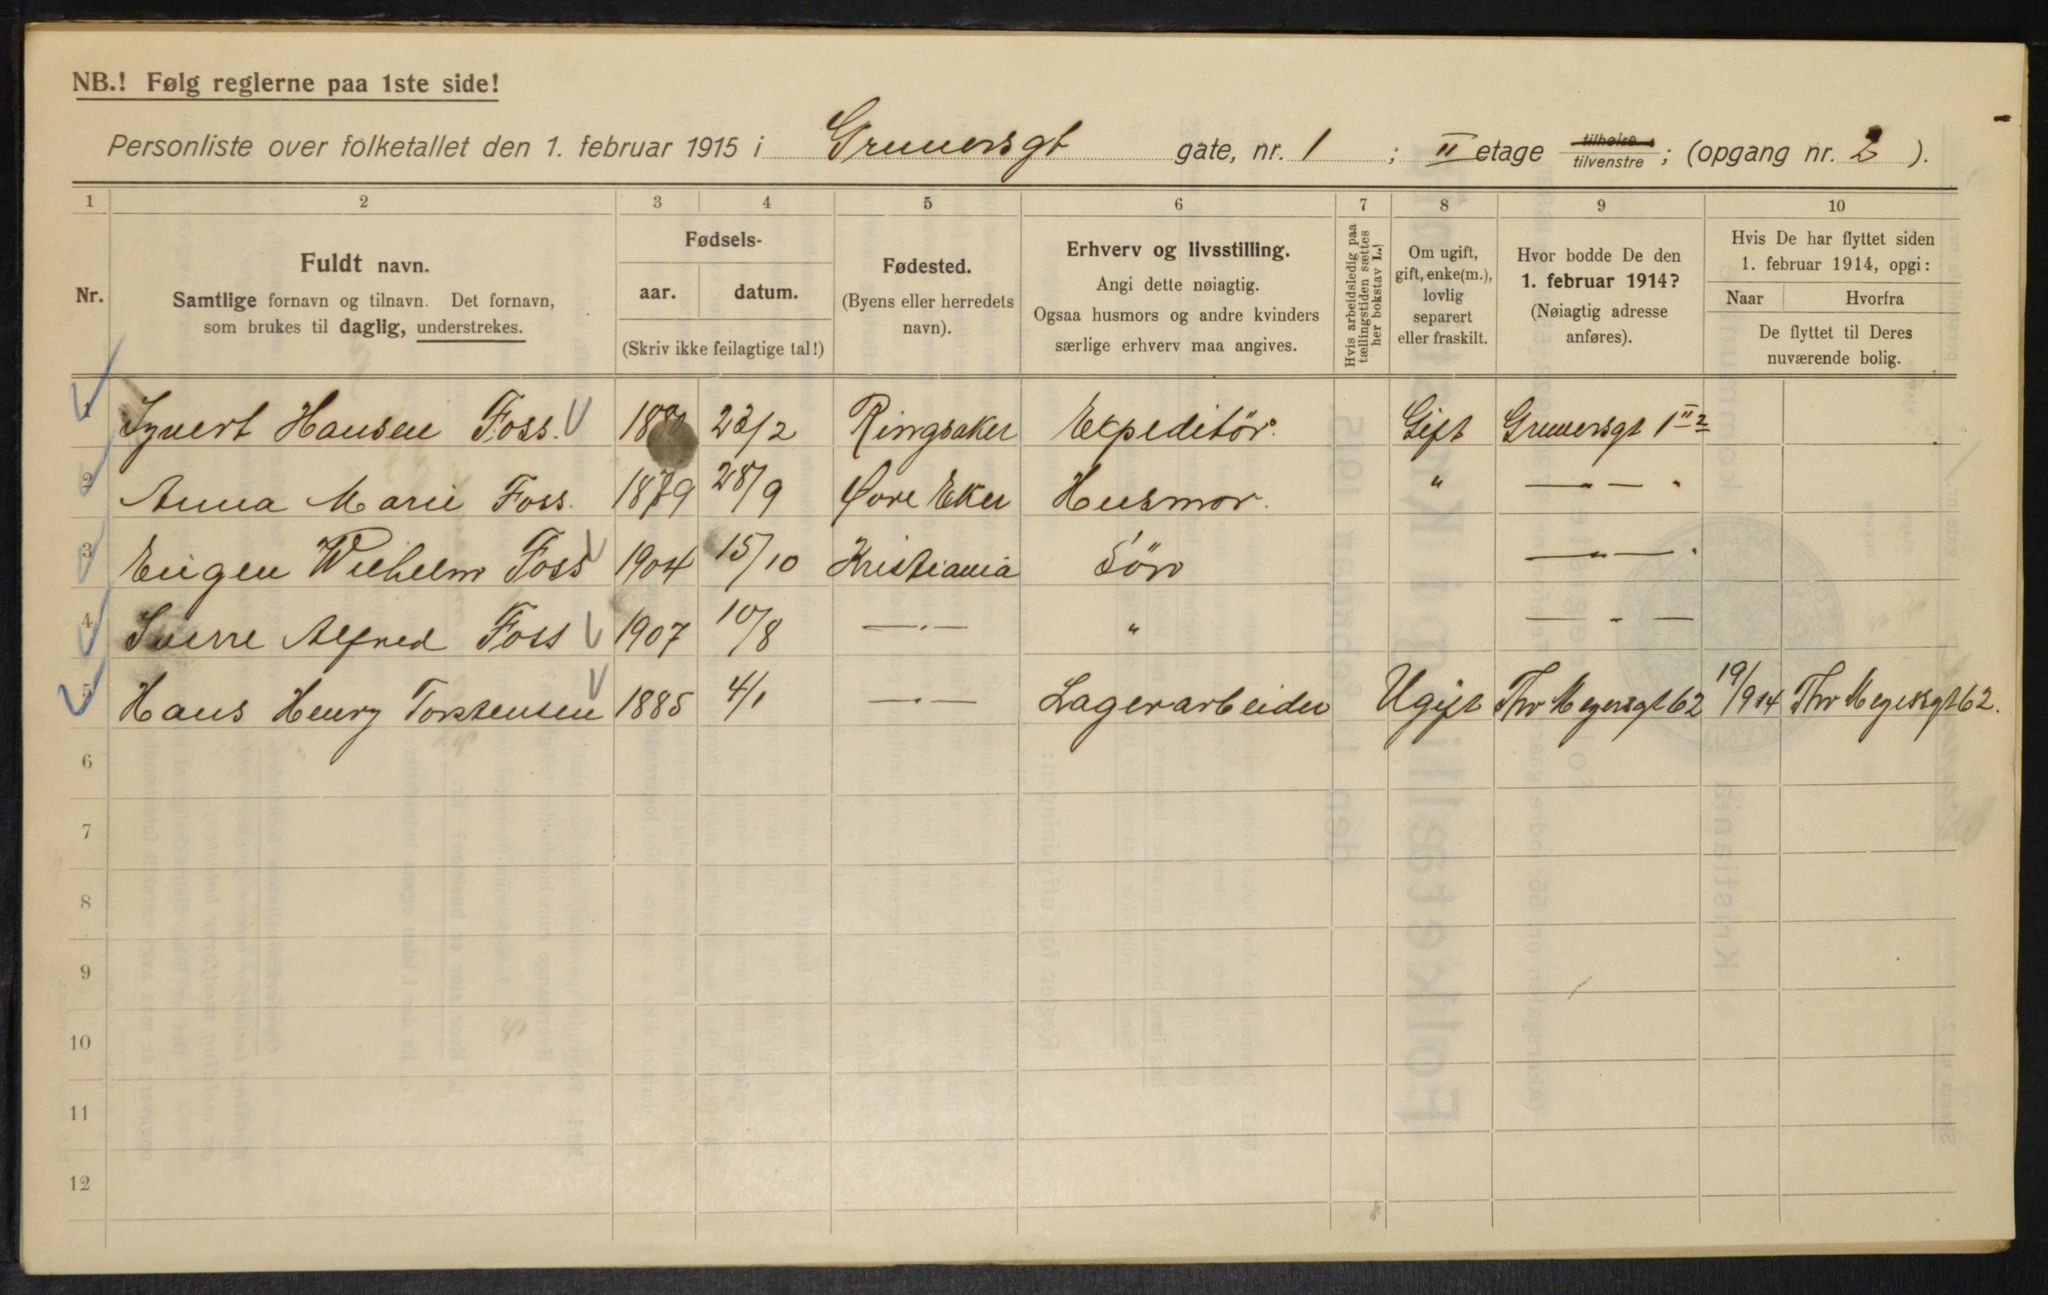 NB.! Følg reglerne paa 1ste side!
Personliste over folketallet den 1. februar 1915 i Gruuersgt gate, nr. 1 ; II etage tilhøire tilvenstre ; (opgang nr. 2 ).
1 2 3 4 5 6 7 8 9 10
Nr.
Fuldt navn.
Samtlige fornavn og tilnavn. Det fornavn,
som brukes til daglig, understrekes.
Fødsels-
aar. datum.
(Skriv ikke feilagtige tal!)
Fødested.
(Byens eller herredets
navn).
Erhverv og livsstilling.
Angi dette nøiagtig.
Ogsaa husmors og andre kvinders
særlige erhverv maa angives.
Hvis arbeidsledig paa
tællingstiden sættes
her bokstav L.!
Om ugift,
gift, enke(m.),
lovlig
separert
eller fraskilt.
Hvor bodde De den
1. februar 1914?
(Nøiagtig adresse
anføres).
Hvis De har flyttet siden
1. februar 1914, opgi:
Naar Hvorfra
De flyttet til Deres
nuværende bolig.
1 Syvert Hansen Foss. 1880 23/2 Ringsaker Expeditör. Gift Gruuersgt 1 II 2
2 Anna Marie Foss. 1879 28/9 Øvre Eker Husmor. " — " — "
3 Eugen Wilhelm Foss 1904 15/10 Kristiania Sön — " — "
4 Sverre Alfred Foss 1907 10/8 — " — " — " —
5 Hans Henry Torstensen 1885 4/1 — " — Lagerarbeider Ugift Thv Meyersgt 62 19/9 14 Thv Meyersgt 62.
6
7
8
9
10
11
12